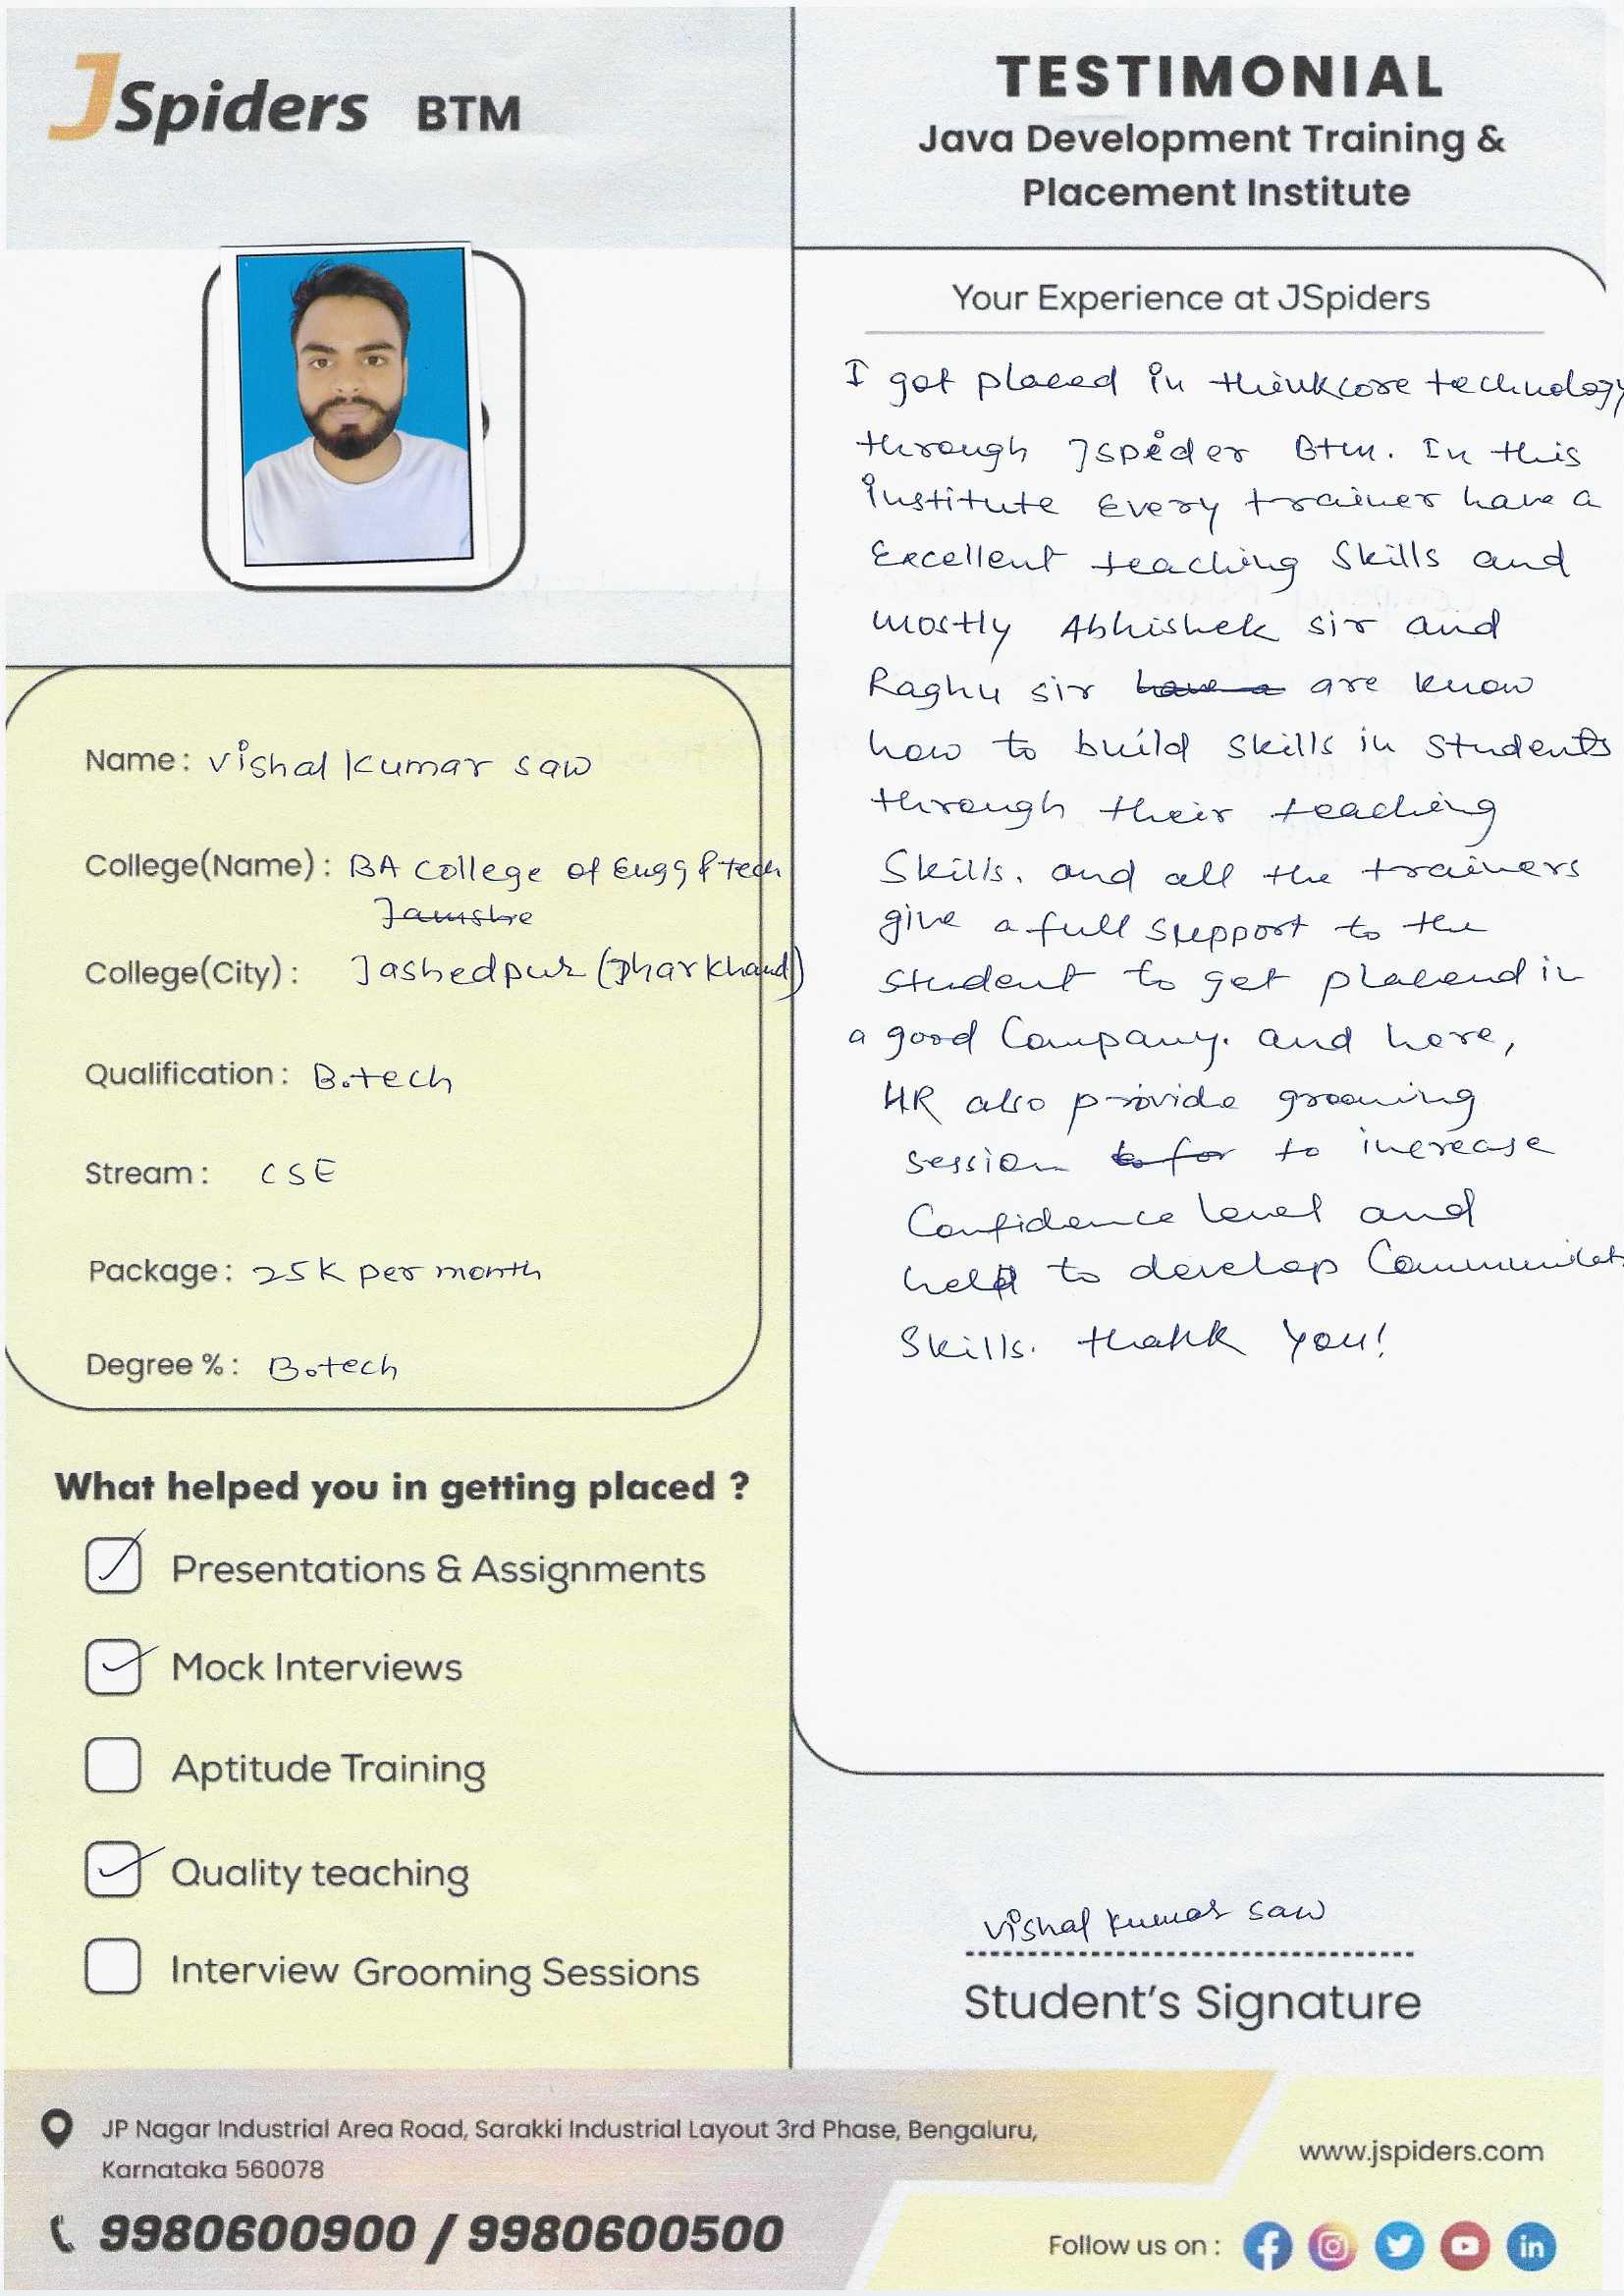 JSpiders BTM
TESTIMONIAL
Java Development Training &
Placement Institute
Name: Vishal Kumar Saw
College(Name): BA College of Engg & tech
Jamshe
College(City): Jashedpur (Jharkhand)
Qualification: B.tech
Stream: CSE
Package: 25K per month
Degree %: B.tech
What helped you in getting placed ?
Presentations & Assignments
Mock Interviews
Aptitude Training
Quality teaching
Interview Grooming Sessions
Your Experience at JSpiders
I got placed in thinkcore technology
through Jspider Btm. In this
institute Every trainer have a
Excellent teaching Skills and
mostly Abhishek sir and
Raghu sir have a are know
how to build skills in students
through their teaching
Skills. and all the trainers
give a full support to the
student to get placend in
a good Company. and here,
HR also provide grooming
session to for to increase
Confidence level and
help to develop
Skills. thank you!
Vishal Kumar Saw
Student's Signature
JP Nagar Industrial Area Road, Sarakki Industrial Layout 3rd Phase, Bengaluru,
Karnataka 560078
9980600900 / 9980600500
www.jspiders.com
Follow us on :